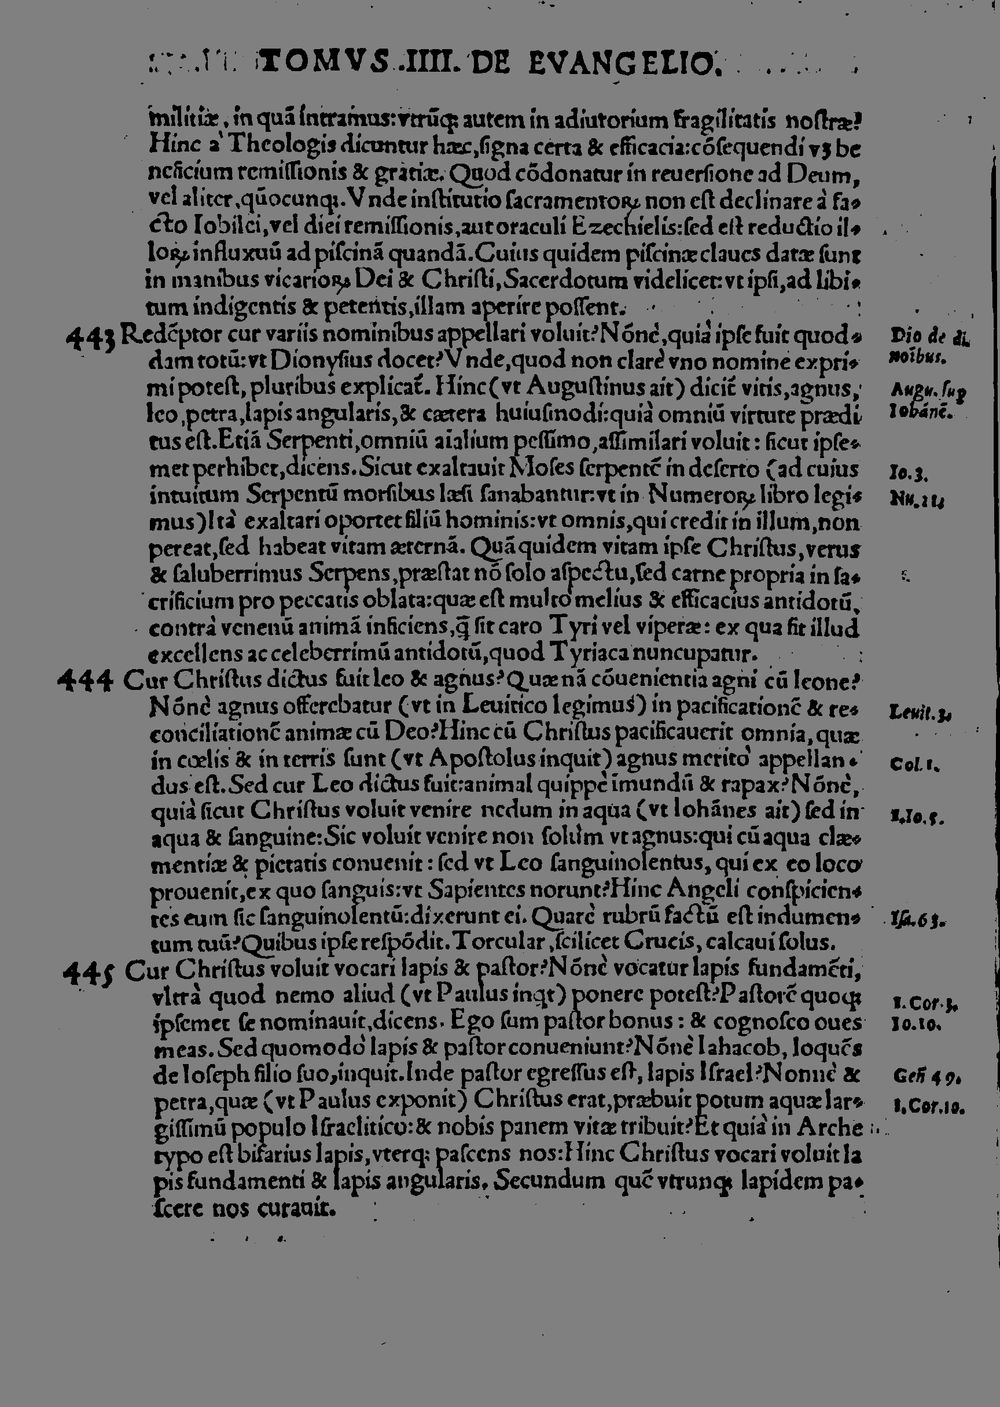 TOMVS .IIII. DE EVANGELIO.
militiæ, in quā intramus: vtrūq; autem in adiutorium fragilitatis nostræ?
Hinc à Theologis dicuntur hæc, signa certa & efficacia: cōsequendi vʒ be
neficium remissionis & gratiæ. Quod cōdonatur in reuersione ad Deum,
vel aliter, qūocunq;. Vnde institutio sacramentoꝝ non est declinare à fa-
cto Iobilei, vel diei remissionis, aut oraculi Ezechielis: sed est reductio il-
loꝝ influxuū ad piscinā quandā. Cuius quidem piscinæ claues datæ sunt
in manibus vicarioꝝ Dei & Christi, Sacerdotum videlicet: vt ipsi, ad libi-
tum indigentis & petentis, illam aperire possent.
443 Redēptor cur variis nominibus appellari voluit? Nōnè, quià ipse fuit quod-
dam totū: vt Dionysius docet? Vnde, quod non clarè vno nomine expri-
mi potest, pluribus explicat̄. Hinc (vt Augustinus ait) dicit̄ vitis, agnus,
leo, petra, lapis angularis, & cætera huiusmodi: quià omniū virtute prædi
tus est. Etiā Serpenti, omniū aialium pessimo, assimilari voluit: sicut ipse-
met perhibet, dicens. Sicut exaltauit Moses serpentē in deserto (ad cuius
intuitum Serpentū morsibus læsi sanabantur: vt in Numeroꝝ libro legi-
mus) Ità exaltari oportet filiū hominis: vt omnis, qui credit in illum, non
pereat, sed habeat vitam æternā. Quā quidem vitam ipse Christus, verus
& saluberrimus Serpens, præstat nō solo aspectu, sed carne propria in sa-
crificium pro peccatis oblata: quæ est multo melius & efficacius antidotū,
contrà venenū animā inficiens, q̃ sit caro Tyri vel viperæ: ex qua fit illud
excellens ac celeberrimū antidotū, quod Tyriaca nuncupatur.
444 Cur Christus dictus fuit leo & agnus? Quænā cōuenientia agni cū leone?
Nōnè agnus offerebatur (vt in Leuitico legimus) in pacificationē & re-
conciliationē animæ cū Deo? Hinc cū Christus pacificauerit omnia, quæ
in cœlis & in terris sunt (vt Apostolus inquit) agnus meritò appellan-
dus est. Sed cur Leo dictus fuit: animal quippè imundū & rapax? Nōnè,
quià sicut Christus voluit venire nedum in aqua (vt Iohānes ait) sed in
aqua & sanguine: Sic voluit venire non solùm vt agnus: qui cū aqua clæ-
mentiæ & pietatis conuenit: sed vt Leo sanguinolentus, qui ex eo loco
prouenit, ex quo sanguis: vt Sapientes norunt? Hinc Angeli conspicien-
tes eum sic sanguinolentū: dixerunt ei. Quarè rubrū factū est indumen-
tum tuū? Quibus ipse respōdit. Torcular, scilicet Crucis, calcaui solus.
445 Cur Christus voluit vocari lapis & pastor? Nōnè vocatur lapis fundamēti,
vltrà quod nemo aliud (vt Paulus inqt) ponere potest? Pastorē quoq;
ipsemet se nominauit, dicens. Ego sum pastor bonus: & cognosco oues
meas. Sed quomodò lapis & pastor conueniunt? Nōnè Iahacob, loquēs
de Ioseph filio suo, inquit. Inde pastor egressus est, lapis Israel? Nonnè &
petra, quæ (vt Paulus exponit) Christus erat, præbuit potum aquæ lar-
gissimū populo Israelitico: & nobis panem vitæ tribuit? Et quià in Arche
typo est bifarius lapis, vterq; pascens nos: Hinc Christus vocari voluit la
pis fundamenti & lapis angularis. Secundum quē vtrunq; lapidem pa-
scere nos curauit.
Dio de di.
noībus.
Augu. sup
Iohānē.
Io.3.
Nu.21.
Leuit.3.
Col.1.
1.Io.5.
Isa.63.
1.Cor.3.
Io.10.
Gen̄ 49.
1.Cor.10.